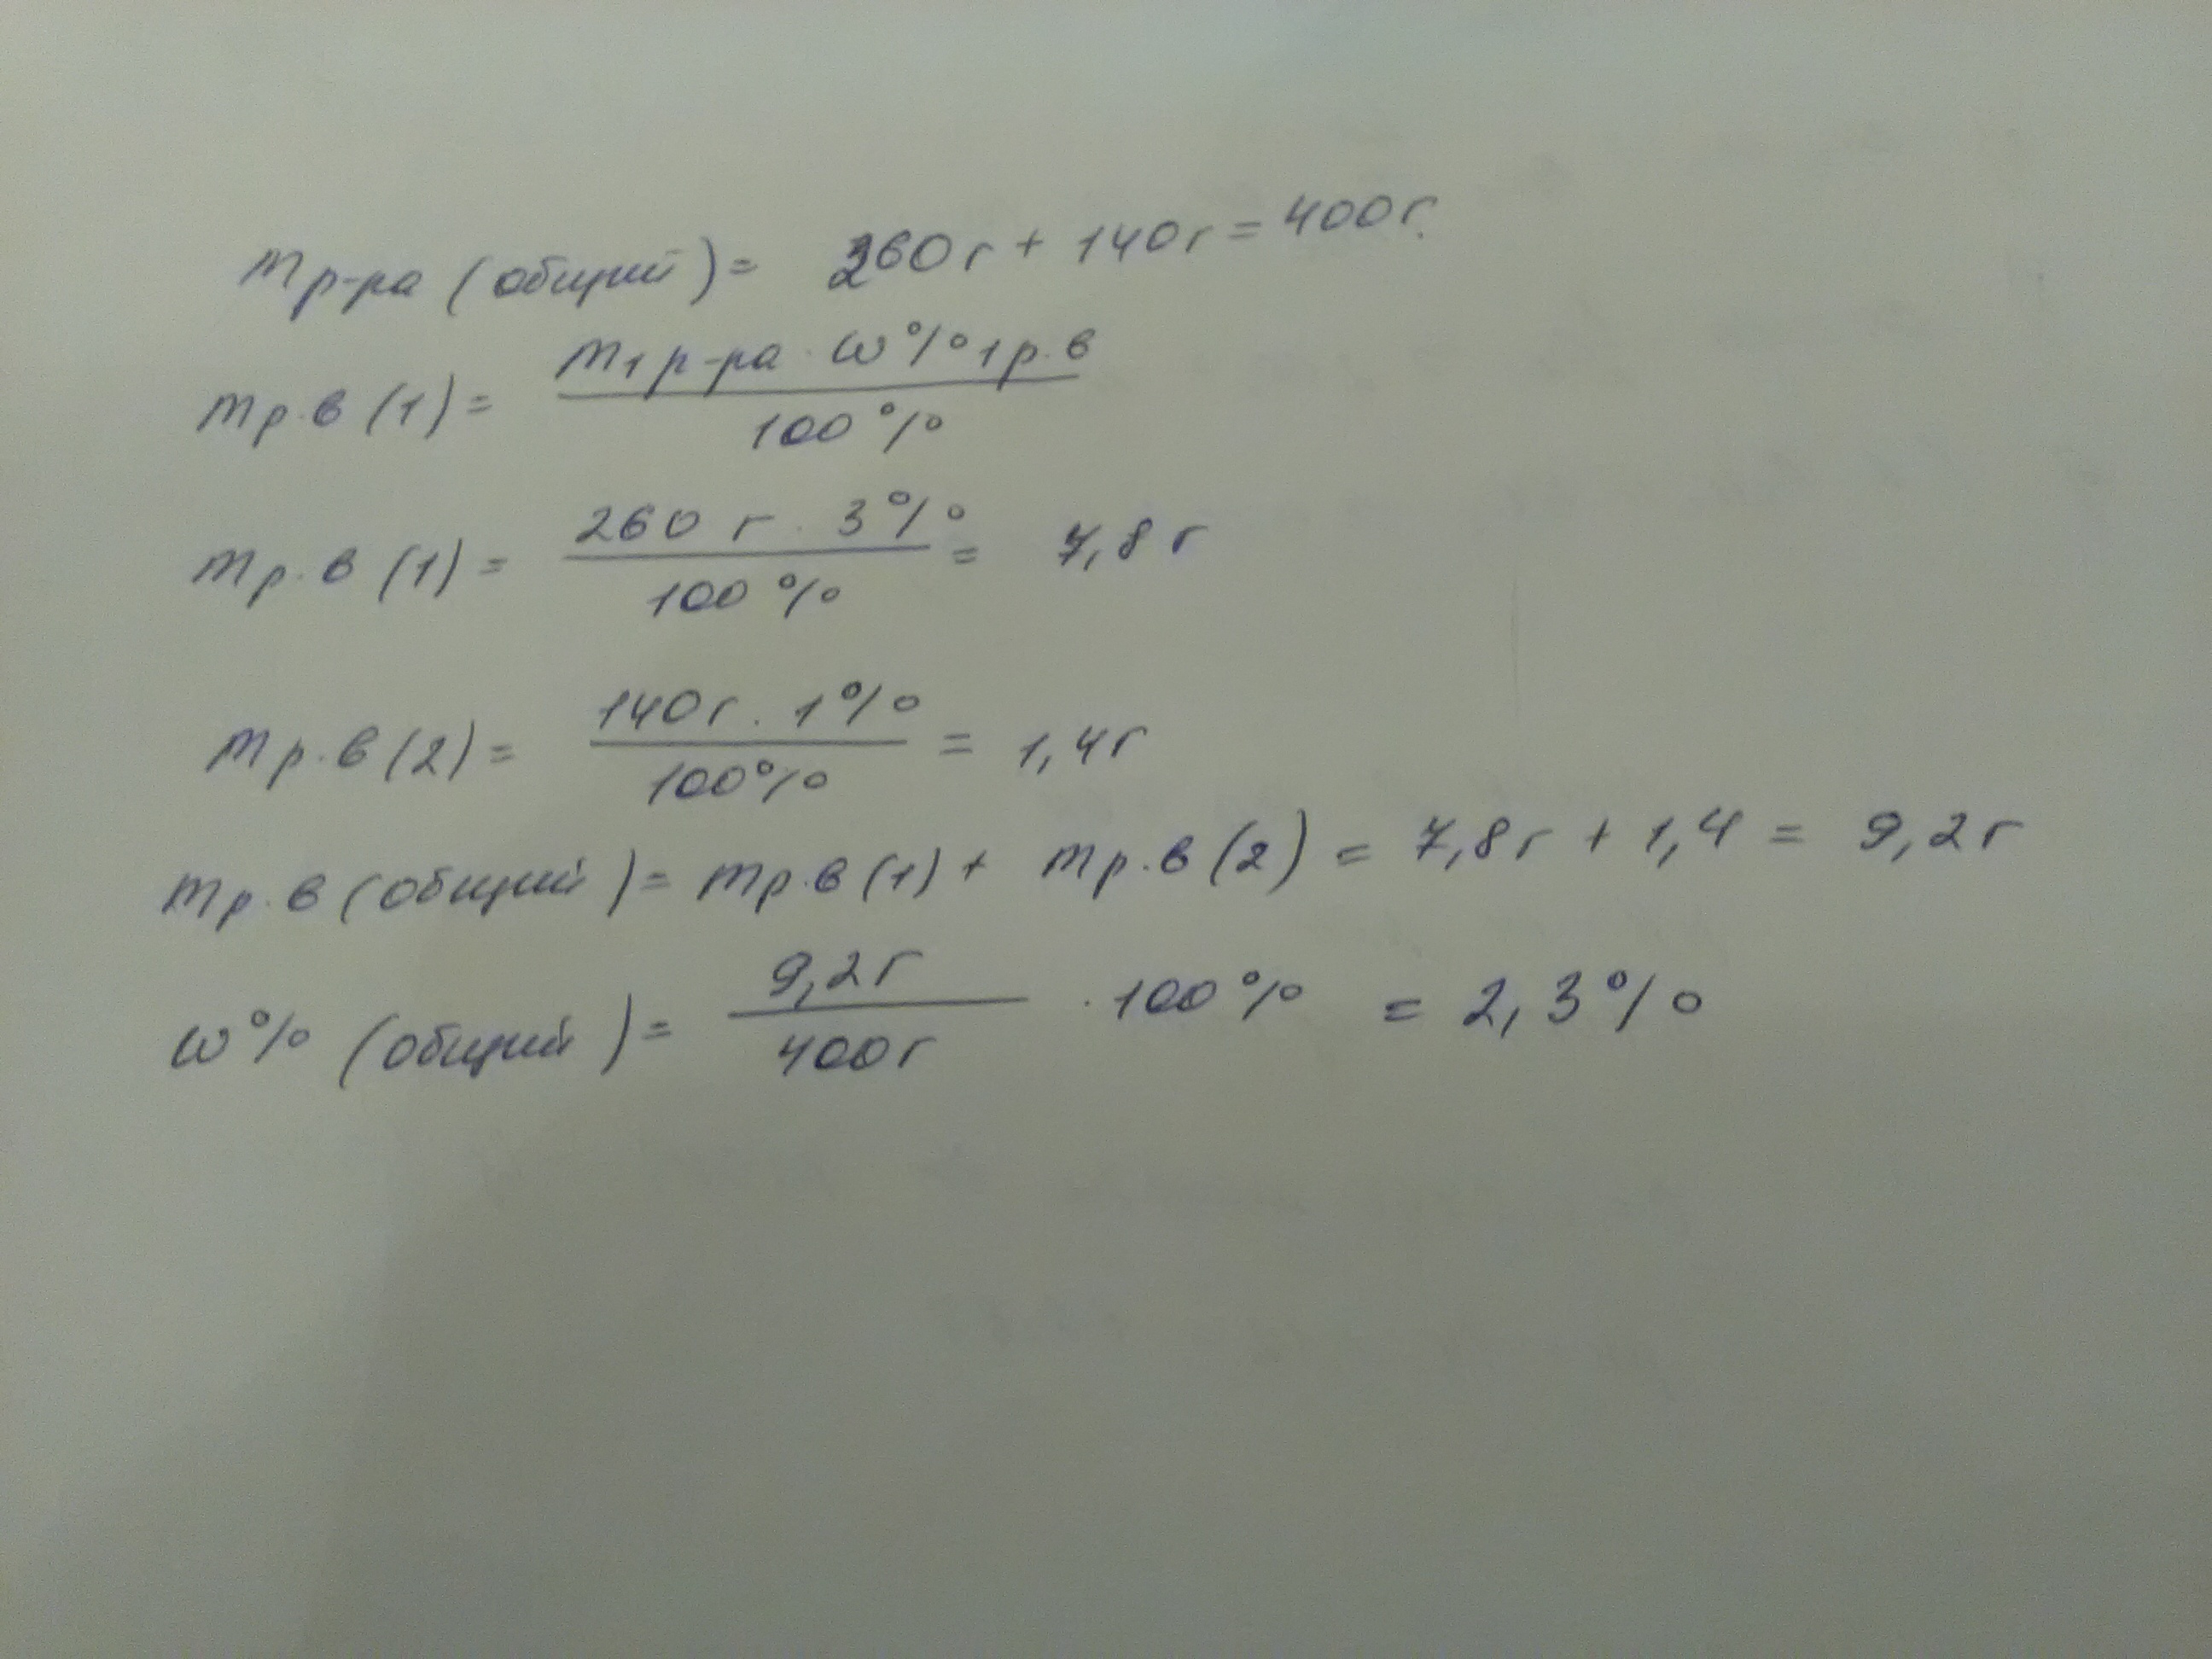 m р-ра (общий) = 260 г + 140 г = 400 г.
m р.в (1) = m1 р-ра · ω% 1 р.в / 100%
m р.в (1) = 260 г · 3% / 100% = 7,8 г
m р.в (2) = 140 г · 1% / 100% = 1,4 г
m р.в (общий) = m р.в (1) + m р.в (2) = 7,8 г + 1,4 = 9,2 г
ω% (общий) = 9,2 г / 400 г · 100% = 2,3%